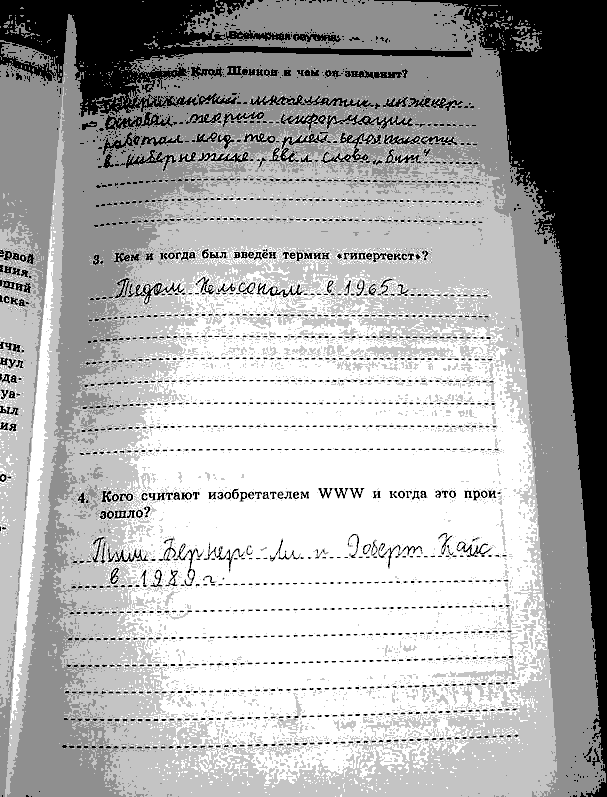 Всемирная паутина
Клод Шеннон и чем он знаменит?
американский математик, инженер.
Основал теорию информации,
работал над теорией вероятности
в кибернетике, ввёл слово „бит"
3. Кем и когда был введён термин «гипертекст»?
Тедом Нельсоном в 1965 г
4. Кого считают изобретателем WWW и когда это прои-
зошло?
Тим Бернерс-Ли и Роберт Кайо
в 1989 г.
ервой
ния.
ший
иска-
ичи.
нул
зда-
уа-
ыл
ия
о-